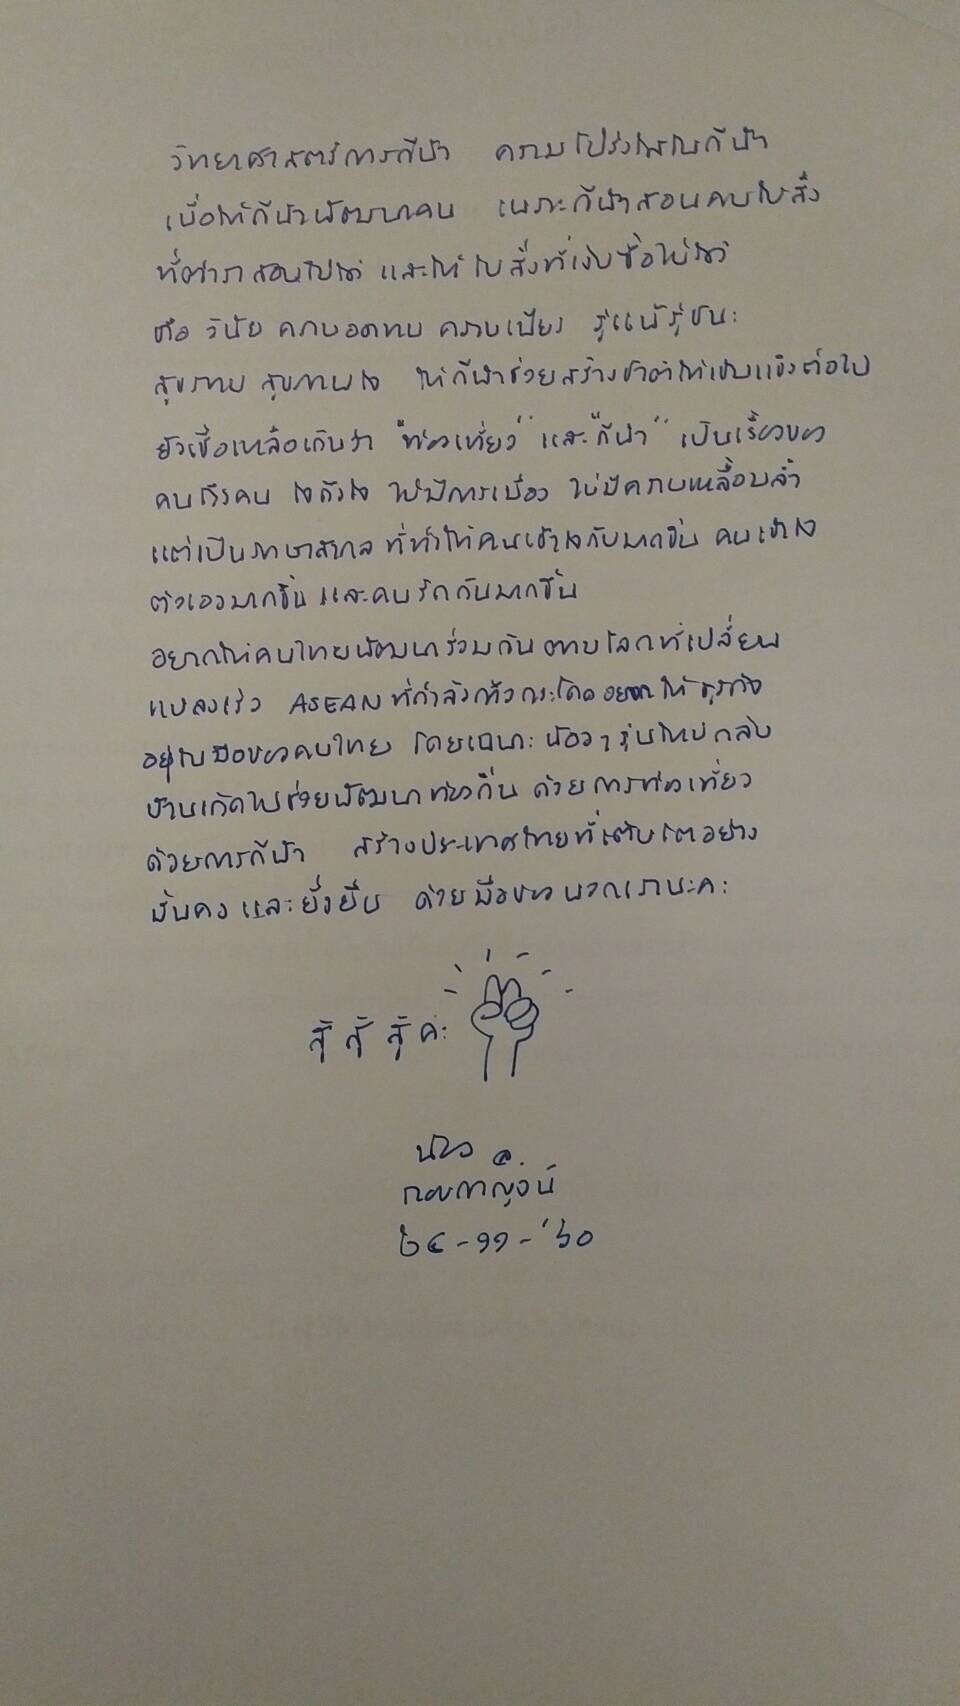 วิทยาศาสตร์การกีฬา ความโปร่งใสในกีฬา
เพื่อให้กีฬาพัฒนาคน เพราะกีฬาสอนคนในสิ่ง
ที่ตำราสอนไม่ได้ และให้ในสิ่งที่เงินซื้อไม่ได้
คือ วินัย ความอดทน ความเพียร รู้แพ้รู้ชนะ
สุขภาพ สุขภาพใจ ให้กีฬาช่วยสร้างชาติให้เข้มแข็งต่อไป
ยังเชื่อเหลือเกินว่า "ท่องเที่ยว" และ "กีฬา" เป็นเรื่องของ
คนถึงคน ใจถึงใจ ไม่มีการเมือง ไม่มีความเหลื่อมล้ำ
แต่เป็นภาษาสากล ที่ทำให้คนเข้าใจกันมากขึ้น คนเข้าใจ
ตัวเองมากขึ้น และคนรักกันมากขึ้น
อยากให้คนไทยพัฒนาร่วมกัน ตามโลกที่เปลี่ยน
แปลงเร็ว ASEAN ที่กำลังก้าวกระโดด อยากให้ธุรกิจ
อยู่ในมือของคนไทย โดยเฉพาะ น้องๆ รุ่นใหม่ กลับ
บ้านเกิดไปช่วยพัฒนาท้องถิ่น ด้วยการท่องเที่ยว
ด้วยการกีฬา สร้างประเทศไทยที่เติบโตอย่าง
มั่นคง และยั่งยืน ด้วยมือของพวกเรานะคะ
สู้ สู้ สู้ ค่ะ
กอบกาญจน์
๒๔-๑๑-'๖๐